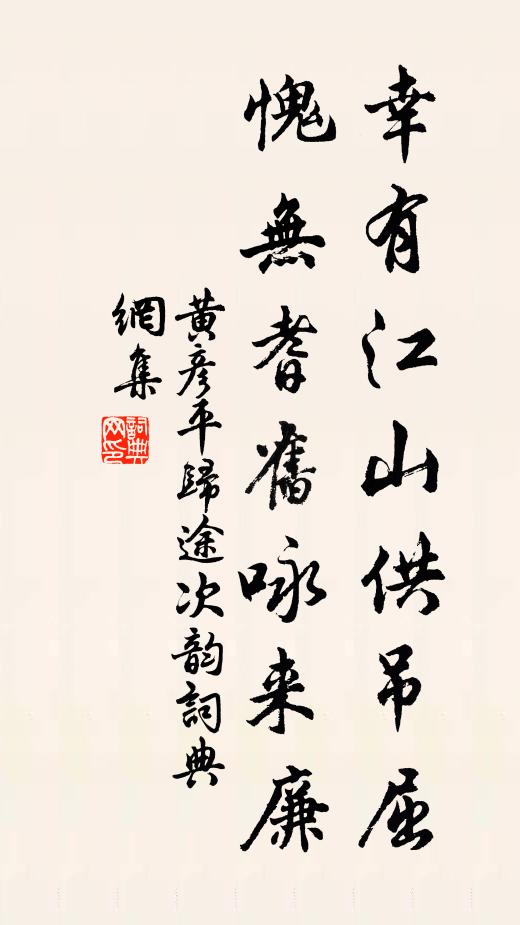 幸有江山供吊屈
愧無耆舊咏来廉
黃彦平歸途次韵詞典
網集
詞典
网印